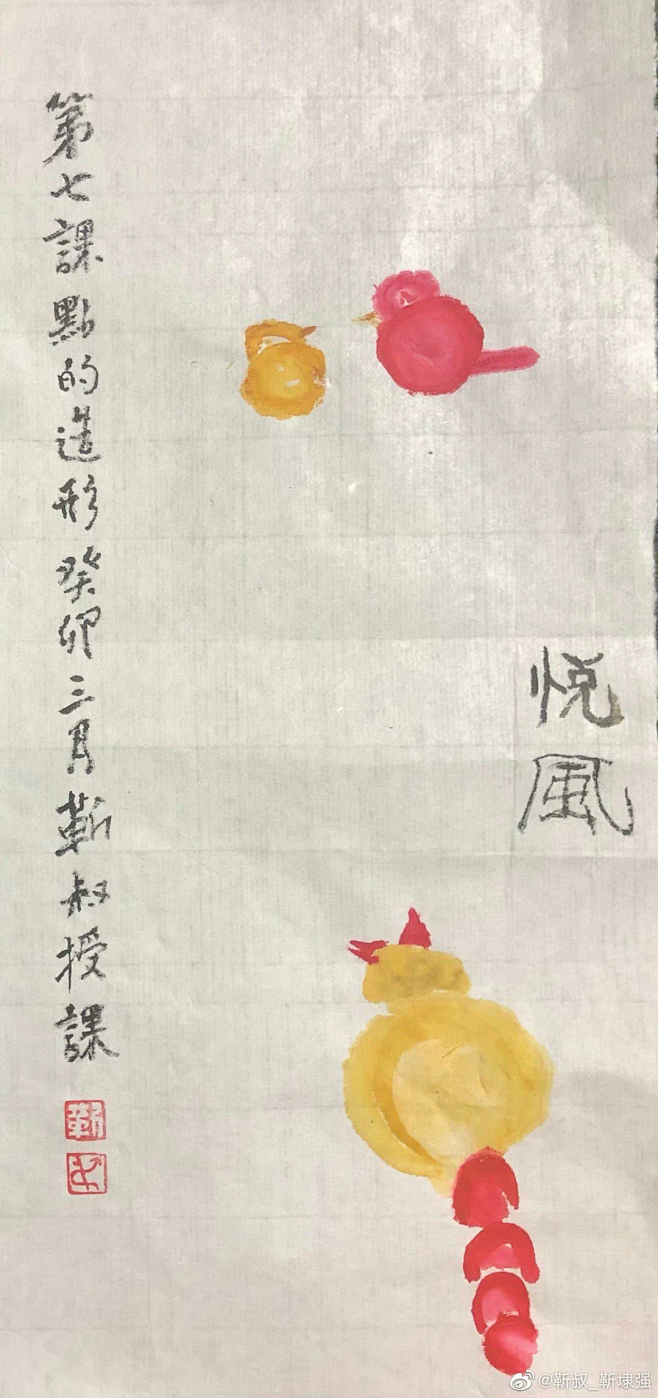 悦風
第七課點的造形癸卯三月靳叔授課
靳
@靳叔_靳埭强